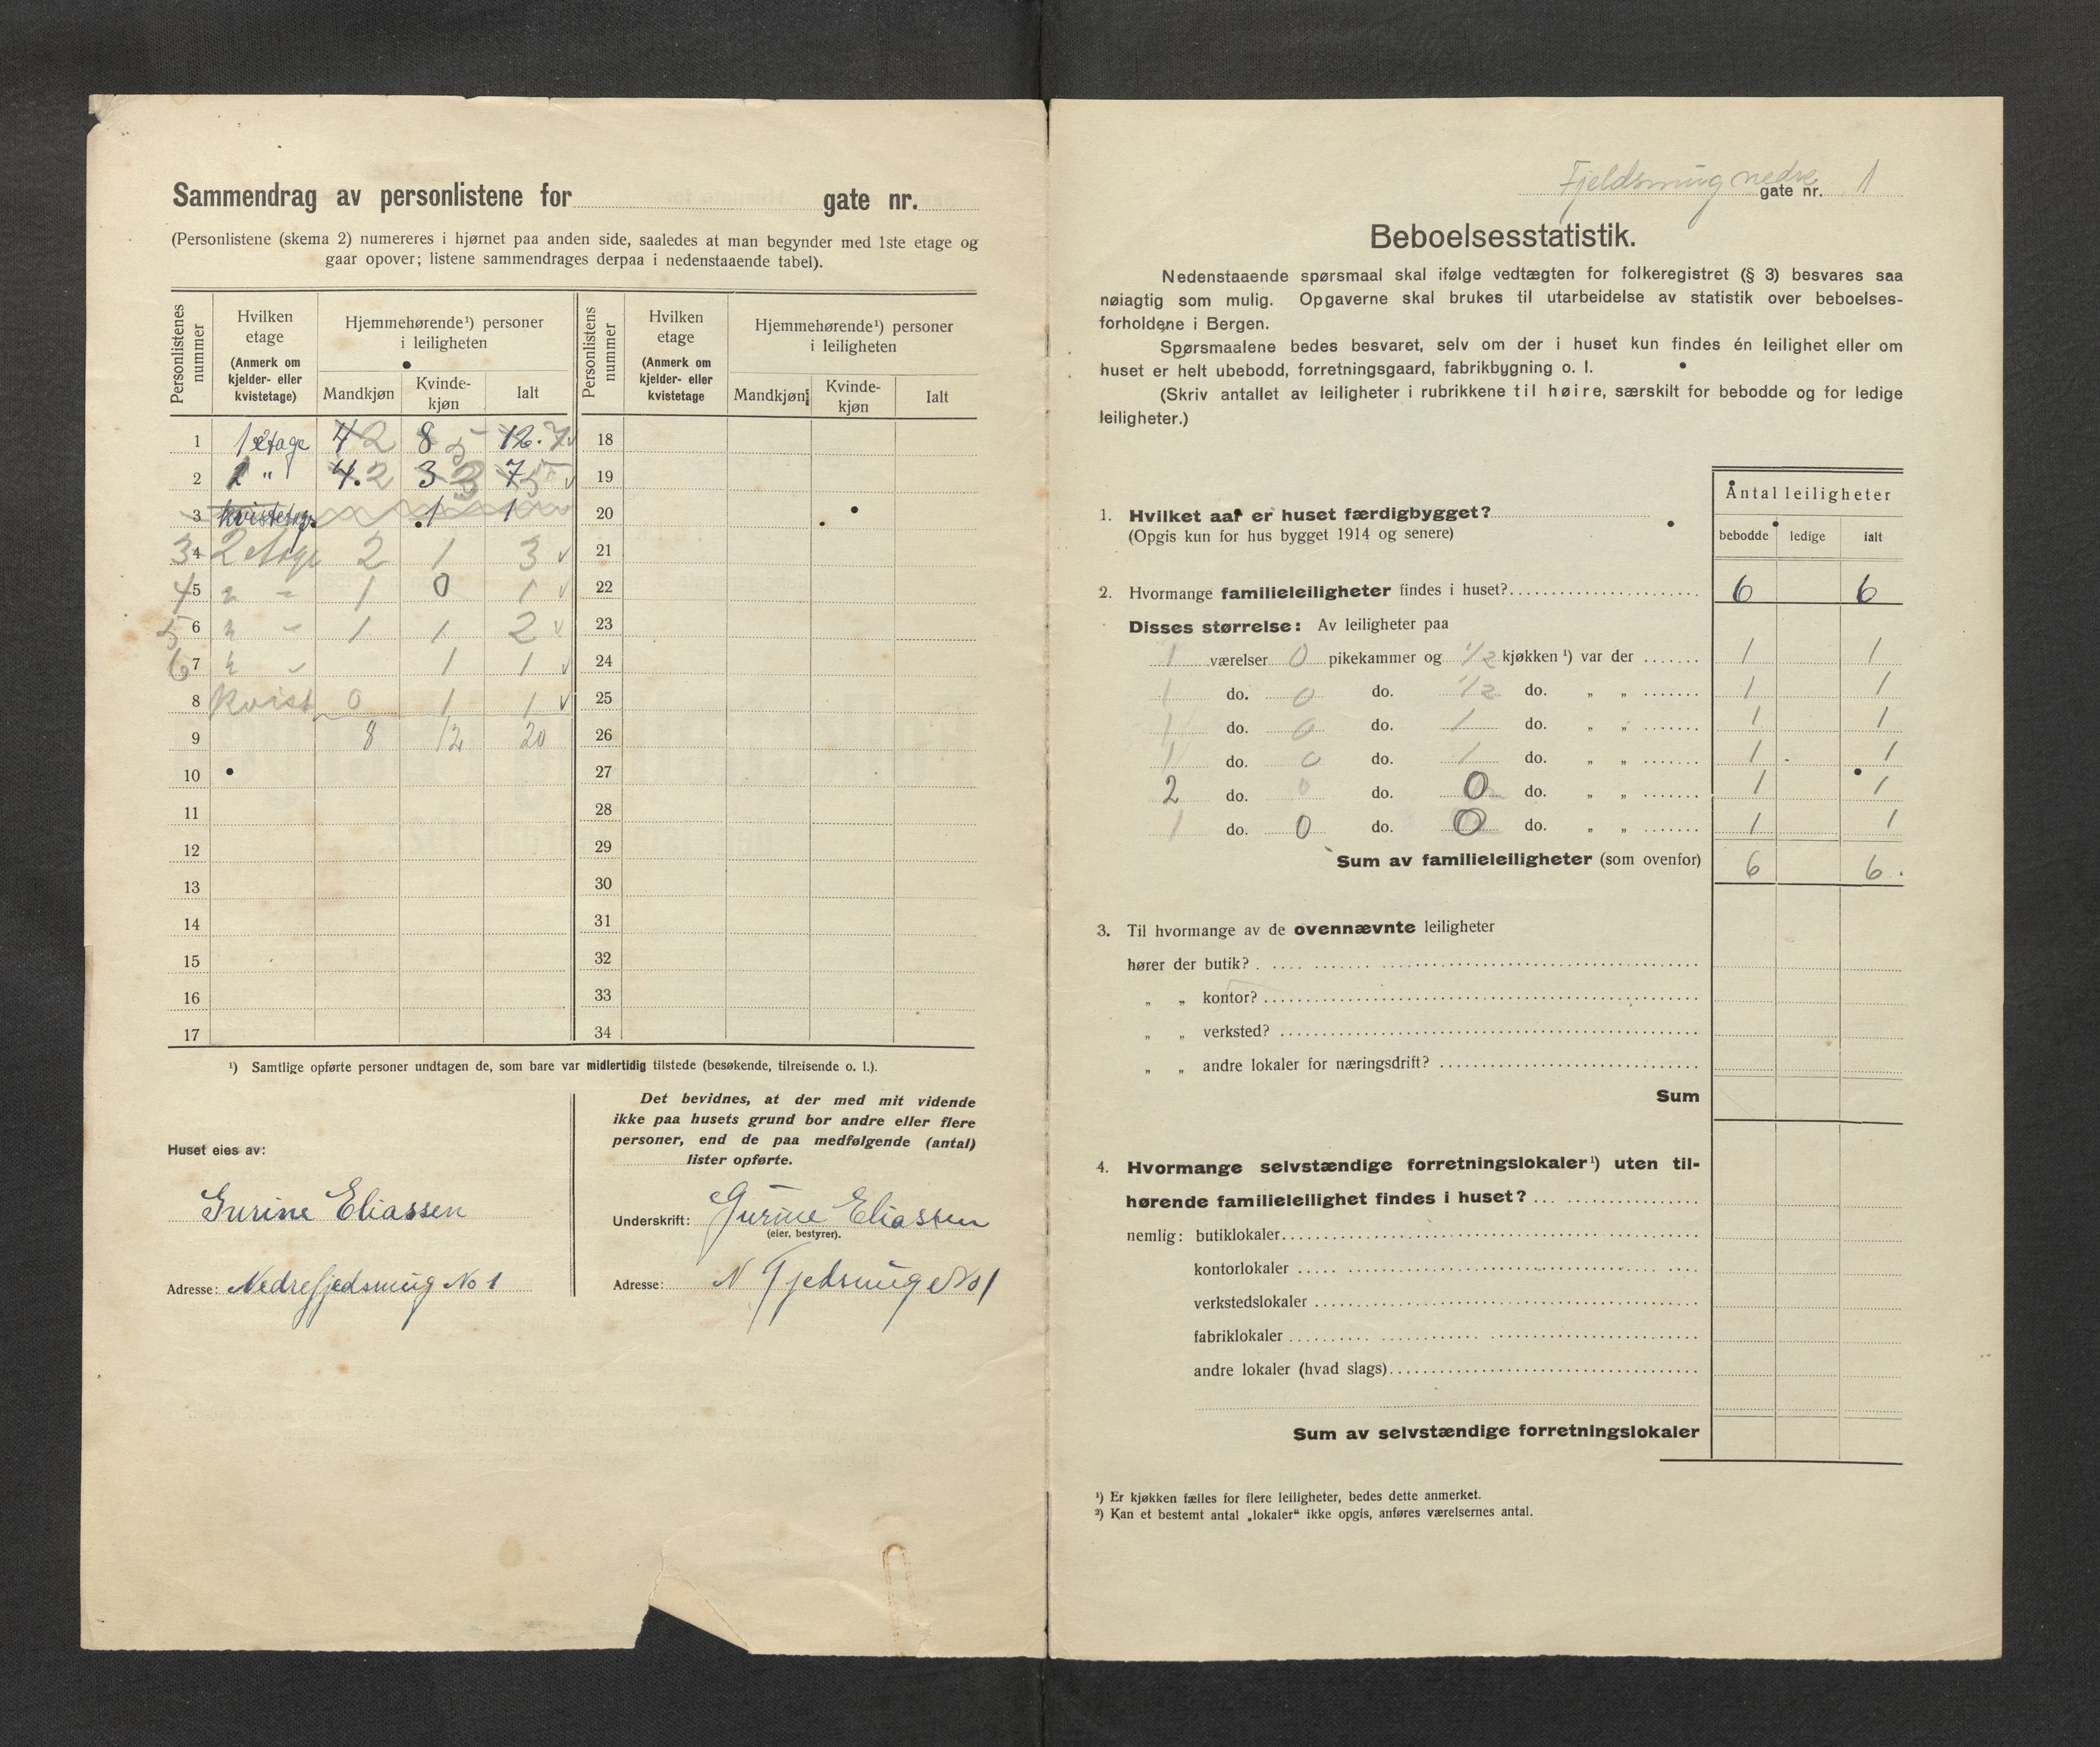 Sammendrag av personlistene for gate nr.
(Personlistene (skema 2) numereres i hjørnet paa anden side, saaledes at man begynder med 1ste etage og
gaar opover; listene sammendrages derpaa i nedenstaaende tabel).
Personlistenes nummer
Hvilken etage
(Anmerk om kjelder- eller kvistetage)
Hjemmehørende¹) personer i leiligheten
Mandkjøn
Kvinde-kjøn
Ialt
Personlistens nummer
Hvilken etage
(Anmerk om kjelder- eller kvistetage)
Hjemmehørende¹) personer i leiligheten
Mandkjøn
Kvinde-kjøn
Ialt
1 1 etage 4 2 8 5 12. 7 18
2 1 " 4. 2 3 3 7 5 19
3 kvistetage 1 1 20
4 3 2 etage 2 1 3 21
5 4 " " 1 0 1 22
6 5 " " 1 1 2 23
7 6 " " 1 1 24
8 kvist 0 1 1 25
9 8 12 20 26
10 27
11 28
12 29
13 30
14 31
15 32
16 33
17 34
¹) Samtlige opførte personer undtagen de, som bare var midlertidig tilstede (besøkende, tilreisende o. l.).
Huset eies av:
Gurine Eliassen
Adresse: Nedrefjedsmug No 1
Det bevidnes, at der med mit vidende
ikke paa husets grund bor andre eller flere
personer, end de paa medfølgende (antal)
lister opførte.
Underskrift: Gurine Eliassen
(eier, bestyrer).
Adresse: N Fjedsmug No 1
Fjeldsmug nedre gate nr. 1
Beboelsesstatistik.
Nedenstaaende spørsmaal skal ifølge vedtægten for folkeregistret (§ 3) besvares saa
nøiagtig som mulig. Opgaverne skal brukes til utarbeidelse av statistik over beboelses-
forholdene i Bergen.
Spørsmaalene bedes besvaret, selv om der i huset kun findes én leilighet eller om
huset er helt ubebodd, forretningsgaard, fabrikbygning o. l.
(Skriv antallet av leiligheter i rubrikkene til høire, særskilt for bebodde og for ledige
leiligheter.)
Antal leiligheter
bebodde ledige ialt
1. Hvilket aar er huset færdigbygget?
(Opgis kun for hus bygget 1914 og senere)
2. Hvormange familieleiligheter findes i huset? 6 6
Disses størrelse: Av leiligheter paa
1 værelser 0 pikekammer og 1/2 kjøkken ¹) var der 1 1
1 do. 0 do. 1/2 do. „ „ 1 1
1 do. 0 do. 1 do. „ „ 1 1
1 do. 0 do. 1 do. „ „ 1 1
2 do. 0 do. 0 do. „ „ 1 1
1 do. 0 do. 0 do. „ „ 1 1
Sum av familieleiligheter (som ovenfor) 6 6.
3. Til hvormange av de ovennævnte leiligheter
hører der butik?
„ „ kontor?
„ „ verksted?
„ „ andre lokaler for næringsdrift?
Sum
4. Hvormange selvstændige forretningslokaler¹) uten til-
hørende familieleilighet findes i huset?
nemlig: butiklokaler
kontorlokaler
verkstedslokaler
fabriklokaler
andre lokaler (hvad slags)
Sum av selvstændige forretningslokaler
¹) Er kjøkken fælles for flere leiligheter, bedes dette anmerket.
²) Kan et bestemt antal „lokaler“ ikke opgis, anføres værelsernes antal.